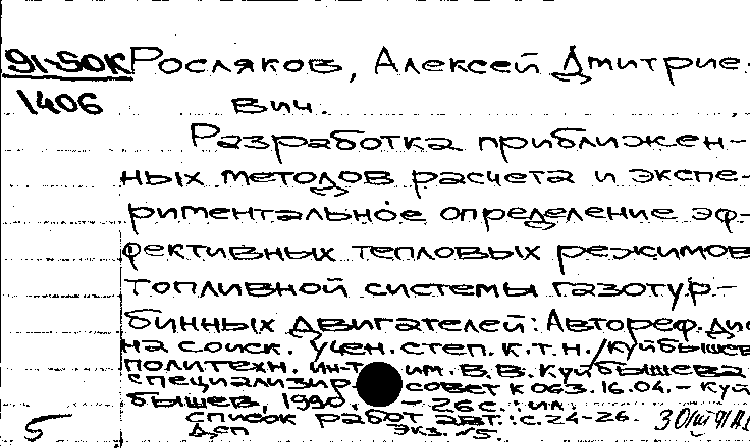 91-50К Росляков, Алексей Дмитрие-
1406 вич.
Разработка приближен-
ных методов расчета и экспе-
риментальное определение эф-
фективных тепловых режимов
топливной системы газотур-
бинных двигателей: Автореф. дис
на соиск. учен. степ. к.т.н. /Куйбышев
политехн. ин-т им. В.В. Куйбышева
специализир. совет К 063.16.04. - Куй
бышев, 1990. - 26 с.: ил.
Список работ авт.: с. 24-26.
5 ДСП Экз. 5.